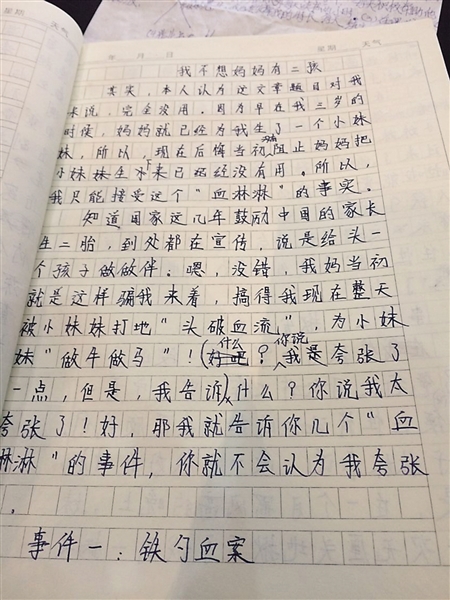 星期 天气
年 月 日 星期 天气
我不想妈妈有二孩
其实，本人认为这文章题目对我
来说，完全没用。因为早在我三岁的
时候，妈妈就已经为我生了一个小妹
妹，所以，现在后悔当初阻止妈妈把
小妹妹生下来已经没有用。所以，
我只能接受这个“血淋淋”的事实。
知道国家这几年鼓励中国的家长
生二胎，到处都在宣传，说是给头一
个孩子做做伴。嗯，没错，我妈当初
就是这样骗我来着，搞得我现在整天
被小妹妹打地“头破血流”，为小妹
妹“做牛做马”！什么？你说我是夸张了
一点，但是，我告诉什么？你说我太
夸张了！好，那我就告诉你几个“血
淋淋”的事件，你就不会认为我夸张
。
事件一：铁勺血案